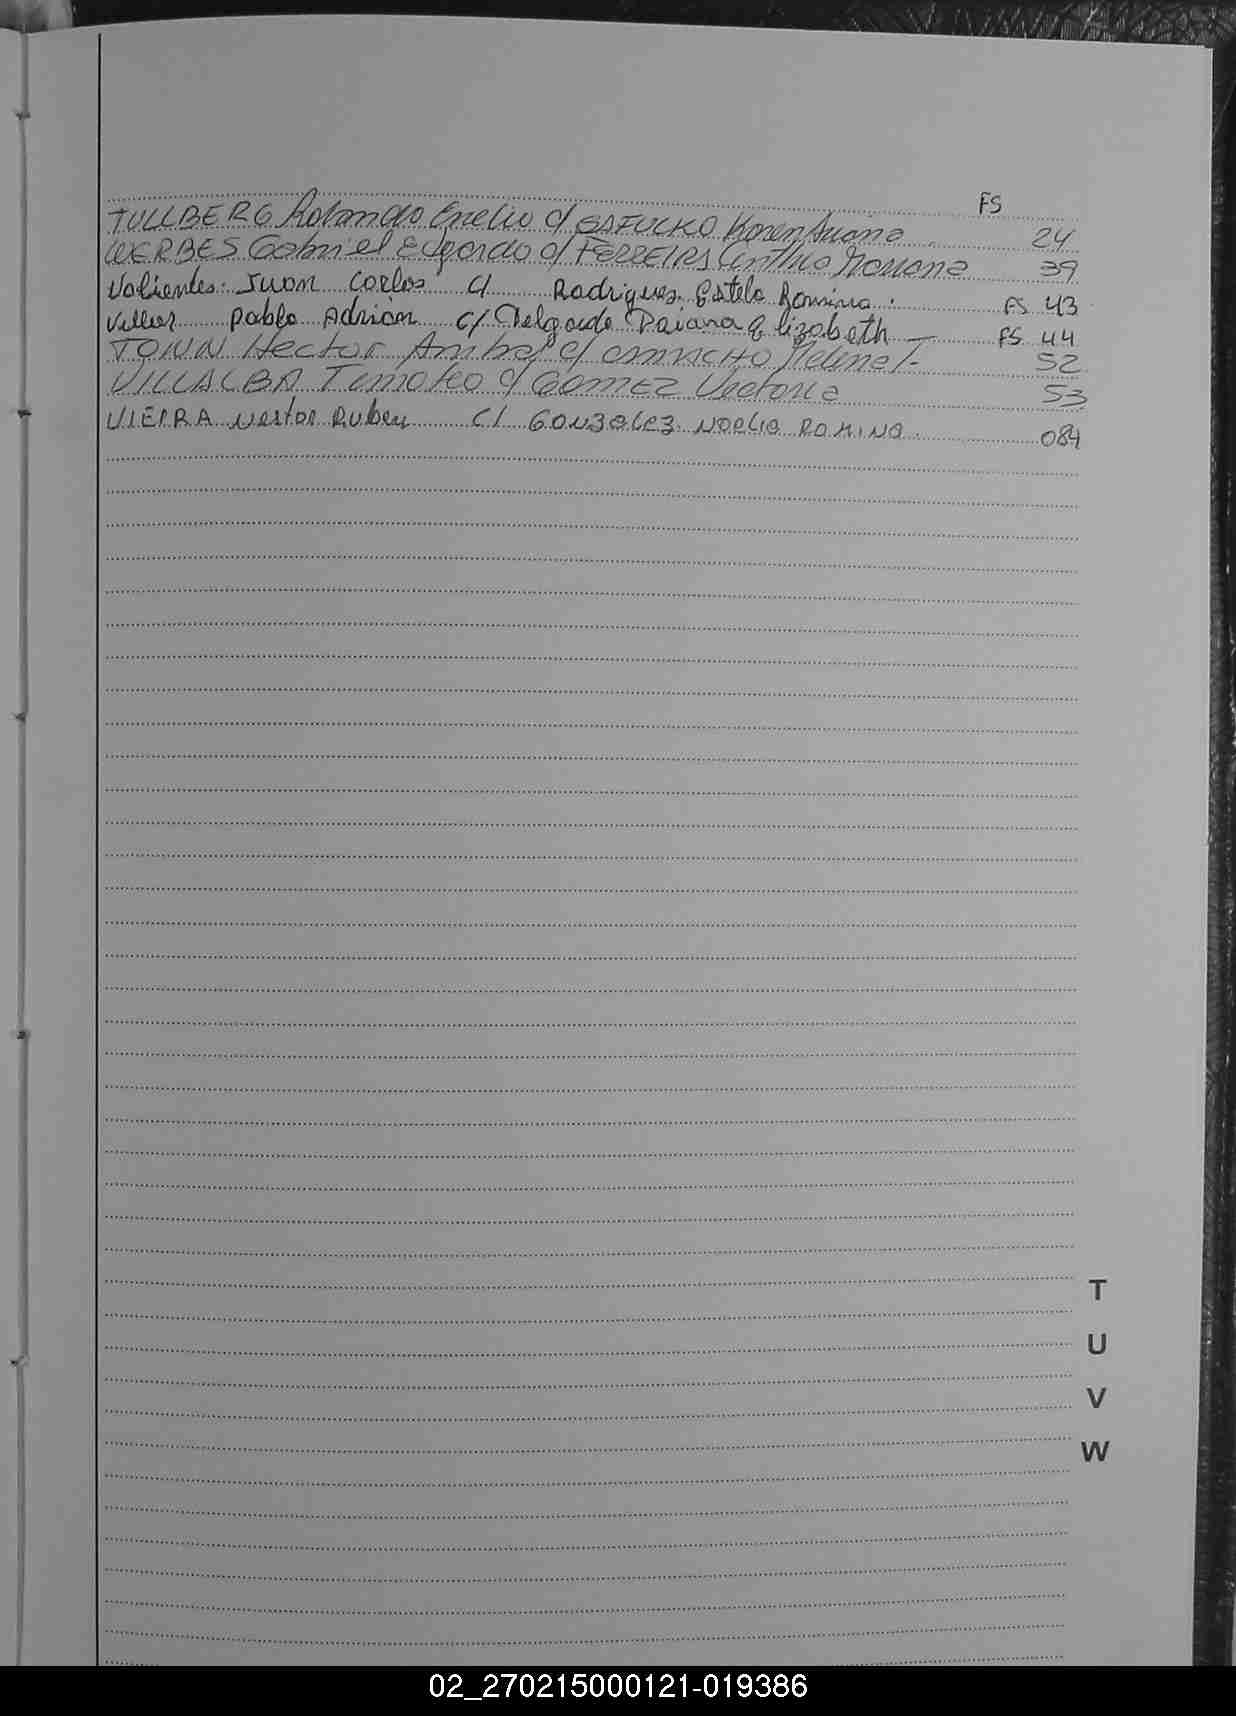 FS
TULLBERG Rolando Enelio c/ GAFULKO Karen Ariana 24
WERBES Gabriel Edgardo c/ FERREIRA Cinthia Mariana 39
Valientes Juan Carlos c/ Rodriguez Estela Romina. FS 43
Villar Pablo Adrian c/ Delgado Daiana Elizabeth FS 44
TONN Hector Anibal c/ CAMACHO T- 52
VILLALBA Timoteo c/ GOMEZ Victoria 53
VIEIRA Nestor Ruben c/ Gonzalez Noelia Romina 084
T
U
V
W
02_270215000121-019386